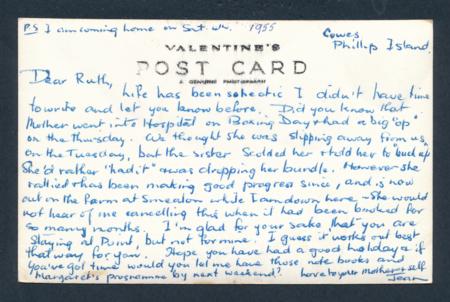 P.S I am coming home on Sat. 1955
Cowes
Phillip Island.
VALENTINE'S
POST CARD
A GENUINE PHOTOGRAPH
Dear Ruth,
Life has been so hectic I didn't have time
to write and let you know before. Did you know that
Mother went into Hospital on Boxing Day & had a big "op"
on the Thursday. We thought she was slipping away from us
on the Tuesday, but the sister scolded her & told her to "buck up"
She'd rather "had it" & was dropping her bundle. However she
rallied & has been making good progress since, and is now
out on the farm at Smeaton while I am down here - She would
not hear of me cancelling this when it had been booked for
so many months. I'm glad for your sake that you are
staying at Point, but not for mine. I guess it works out best
that way for you. Hope you have had a good holiday & if
you've got time would you let me have those note books and
Margaret's programme by next weekend? Love to your Mother & self
Jean